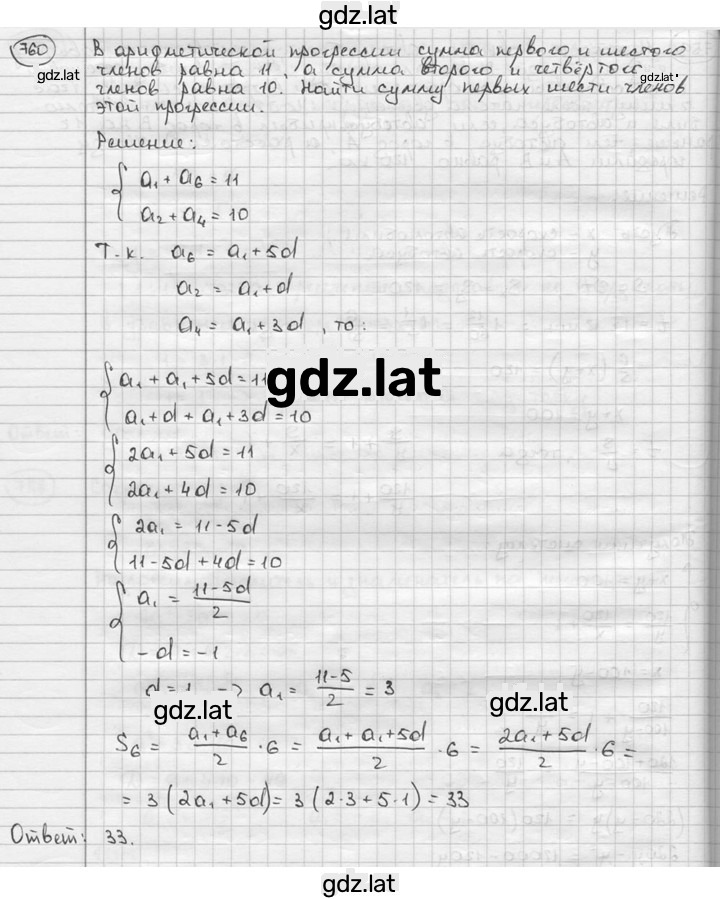 gdz.lat
760
gdz.lat
В арифметической прогрессии сумма первого и шестого
членов равна 11, а сумма второго и четвёртого
gdz.lat
членов равна 10. Найти сумму первых шести членов
этой прогрессии.
Решение:
a₁ + a₆ = 11
a₂ + a₄ = 10
Т.к. a₆ = a₁ + 5d
a₂ = a₁ + d
a₄ = a₁ + 3d, то:
a₁ + a₁ + 5d = 11
gdz.lat
a₁ + d + a₁ + 3d = 10
2a₁ + 5d = 11
2a₁ + 4d = 10
2a₁ = 11 - 5d
11 - 5d + 4d = 10
a₁ = (11 - 5d)/2
- d = -1
d = 1 → a₁ = (11 - 5)/2 = 3
gdz.lat
gdz.lat
S₆ = (a₁ + a₆)/2 · 6 = (a₁ + a₁ + 5d)/2 · 6 = (2a₁ + 5d)/2 · 6 =
= 3 (2a₁ + 5d) = 3 (2·3 + 5·1) = 33
Ответ: 33.
gdz.lat